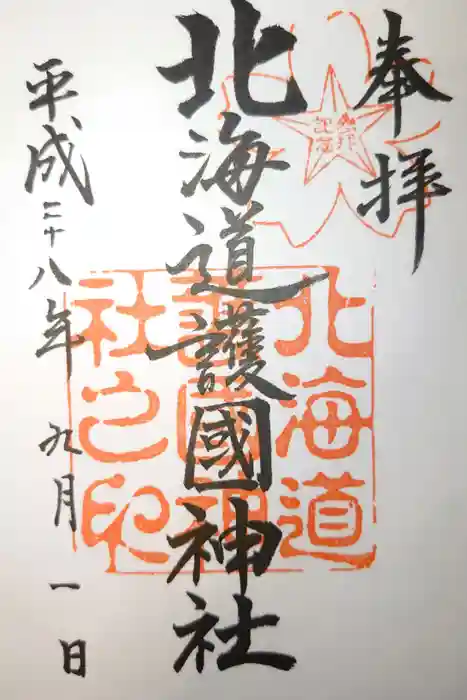 奉拝
北海道護國神社
平成二十八年 九月 一日
北海道
護國神
社之印
参拝
記念